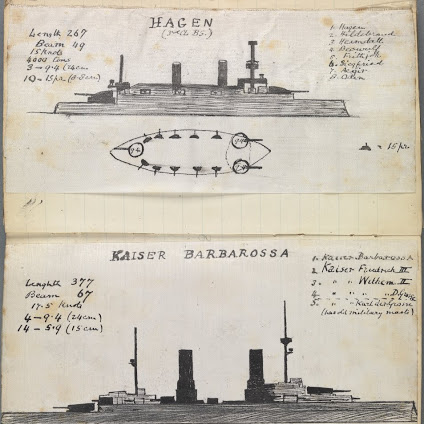 HAGEN
(3rd Cl. B.S.)
Length 267
Beam 49
15 Knots
4000 Tons
3 – 9.4 (24cm
10 – 15pr. (8.8cm)
1. Hagen
2. Hildebrand
3. Heimdall
4. Beowulf
5. Frithjof
6. Siegfried
7. Aegir
8. Odin
9.4
9.4
9.4
= 15 pr.
KAISER BARBAROSSA
Lenghth 377
Beam 67
17.5 Knots
4 – 9.4 (24cm)
14 – 5.9 (15cm)
1. Kaiser Barbarossa
2 Kaiser Friedrich III
3. " " Wilhelm II
4. " " " D. Grosse
5. " " Karl der Grosse
(has military masts)